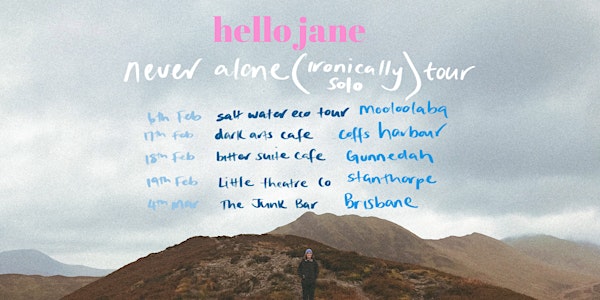 hello jane
never alone (ironically solo) tour
6th Feb salt water eco tour Mooloolaba
17th Feb dark arts cafe coffs harbour
18th Feb bitter suite cafe Gunnedah
19th Feb Little theatre Co Stanthorpe
4th Mar The Junk Bar Brisbane